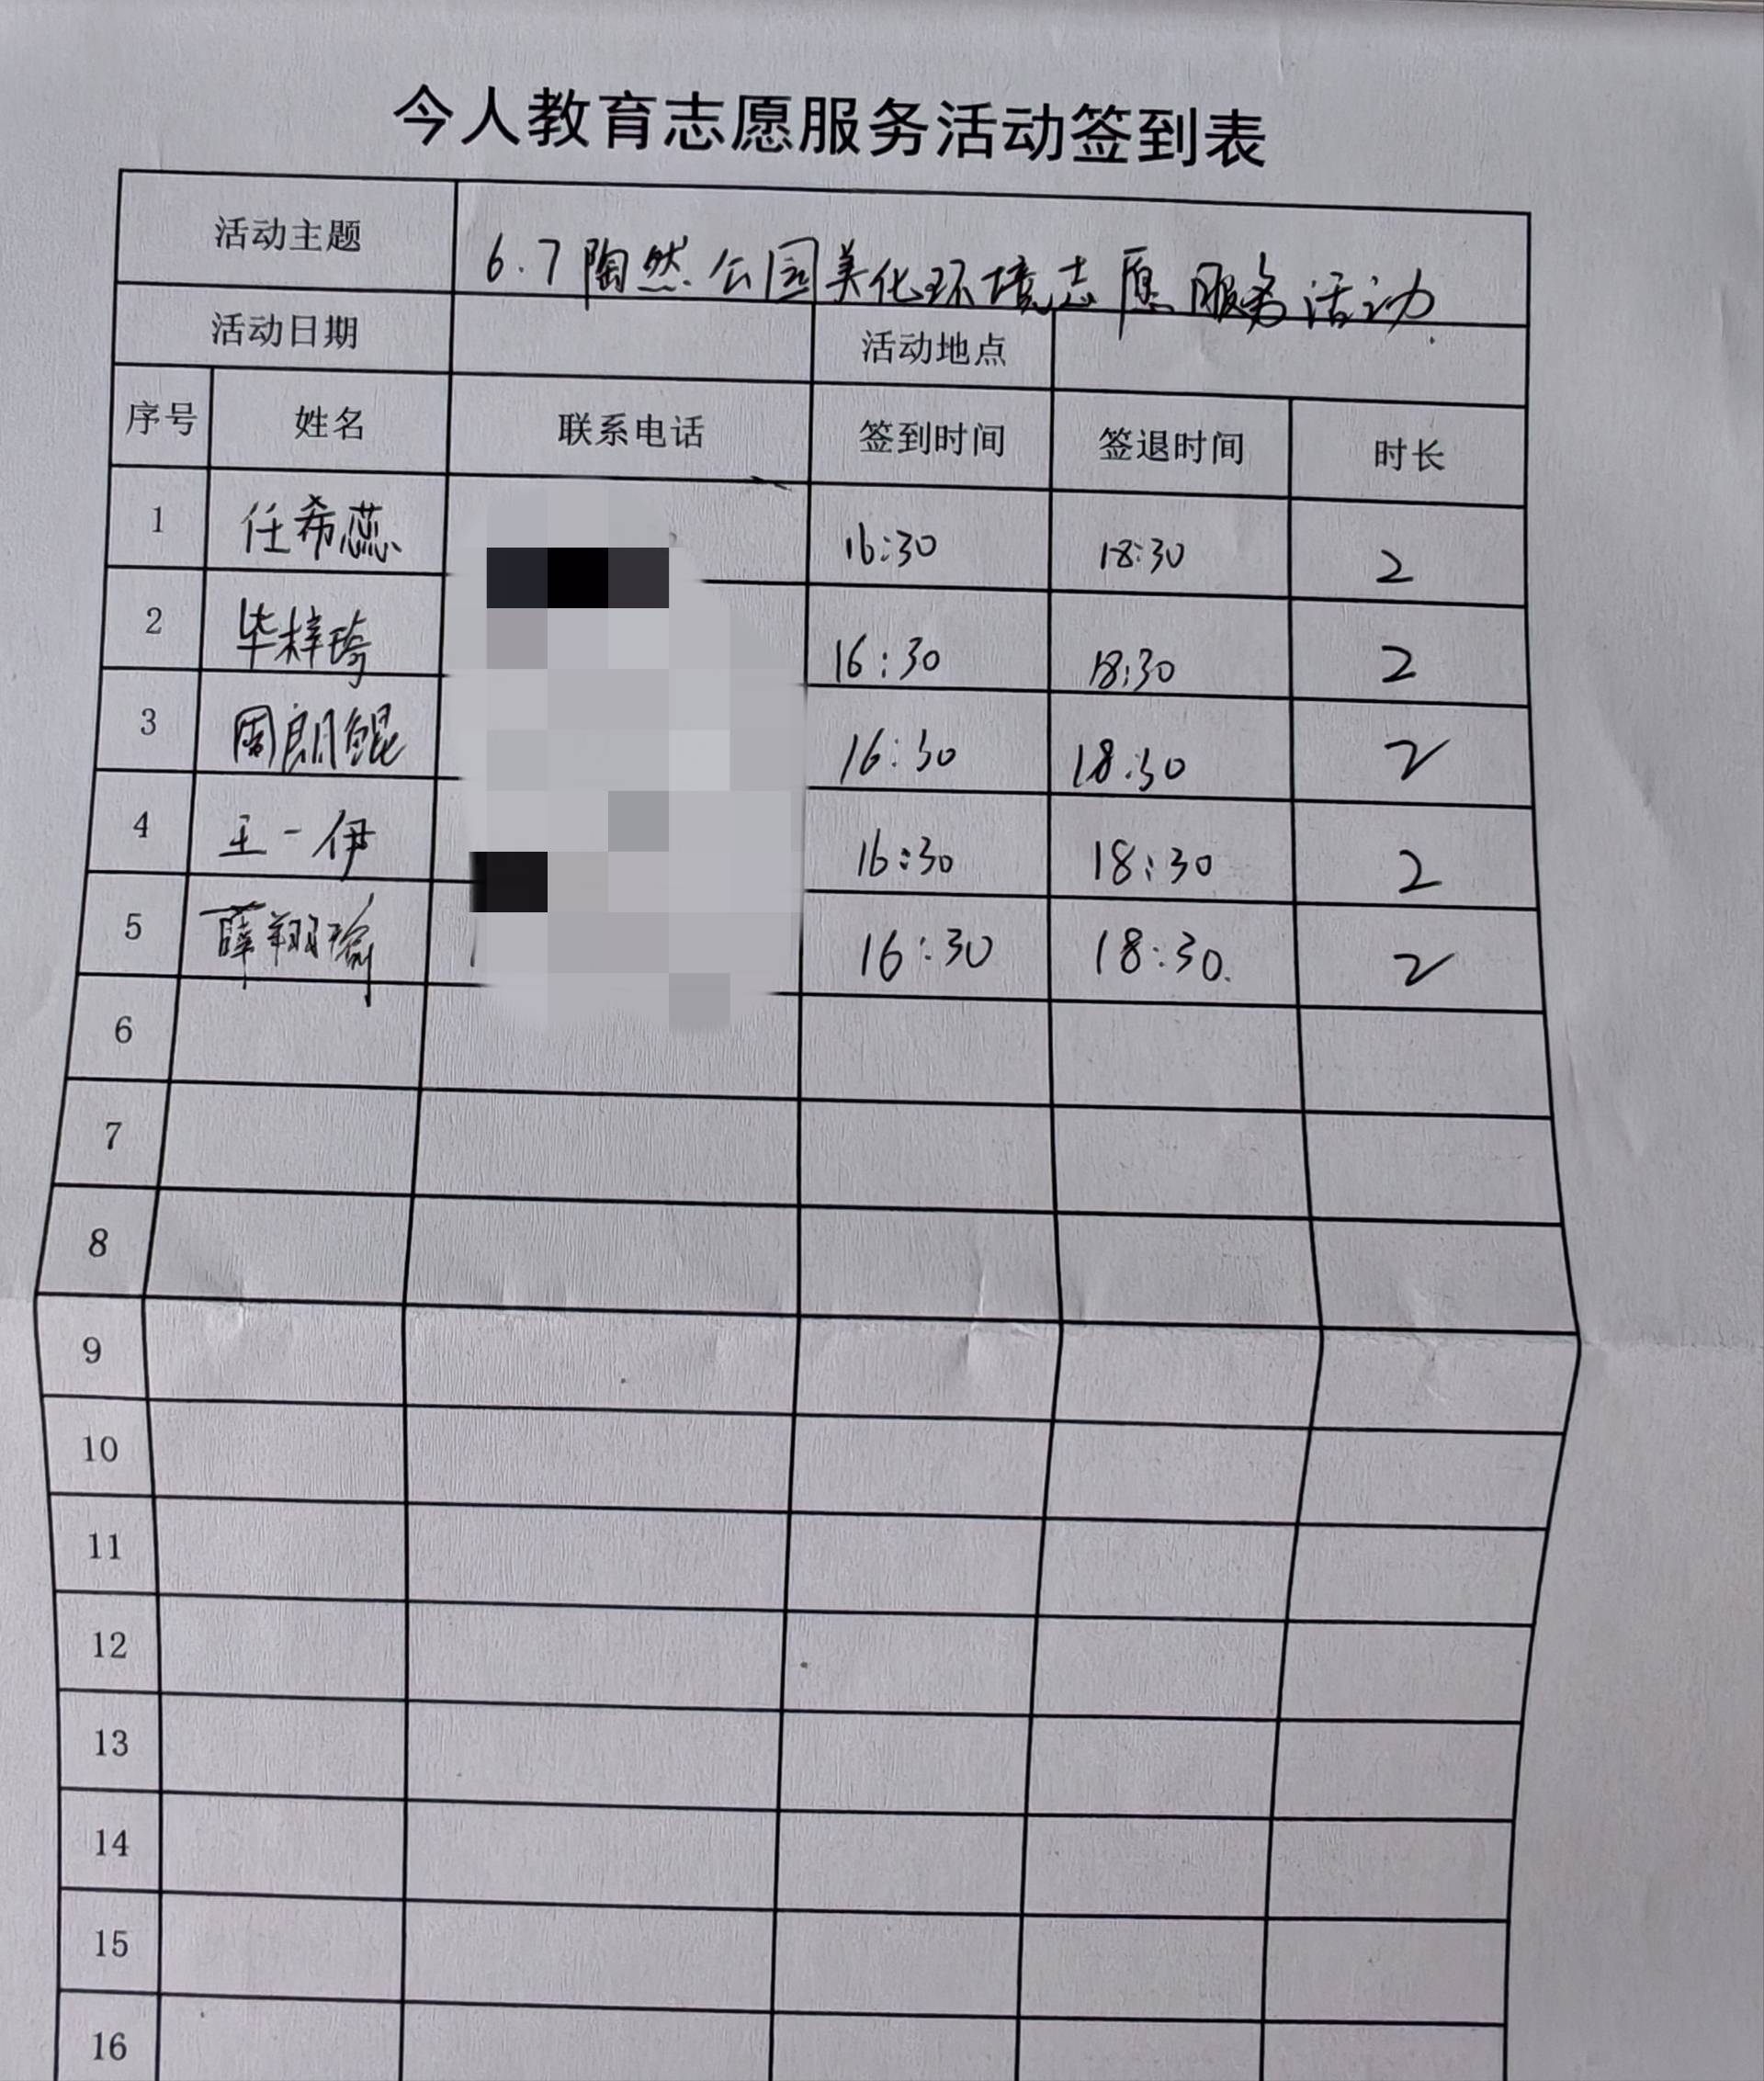 今人教育志愿服务活动签到表
活动主题 6.7陶然公园美化环境志愿服务活动.
活动日期 活动地点
序号 姓名 联系电话 签到时间 签退时间 时长
1 任希蕊 16:30 18:30 2
2 毕梓琦 16:30 18:30 2
3 周朗鲲 16:30 18:30 2
4 王一伊 16:30 18:30 2
5 薛翔瑜 16:30 18:30. 2
6
7
8
9
10
11
12
13
14
15
16